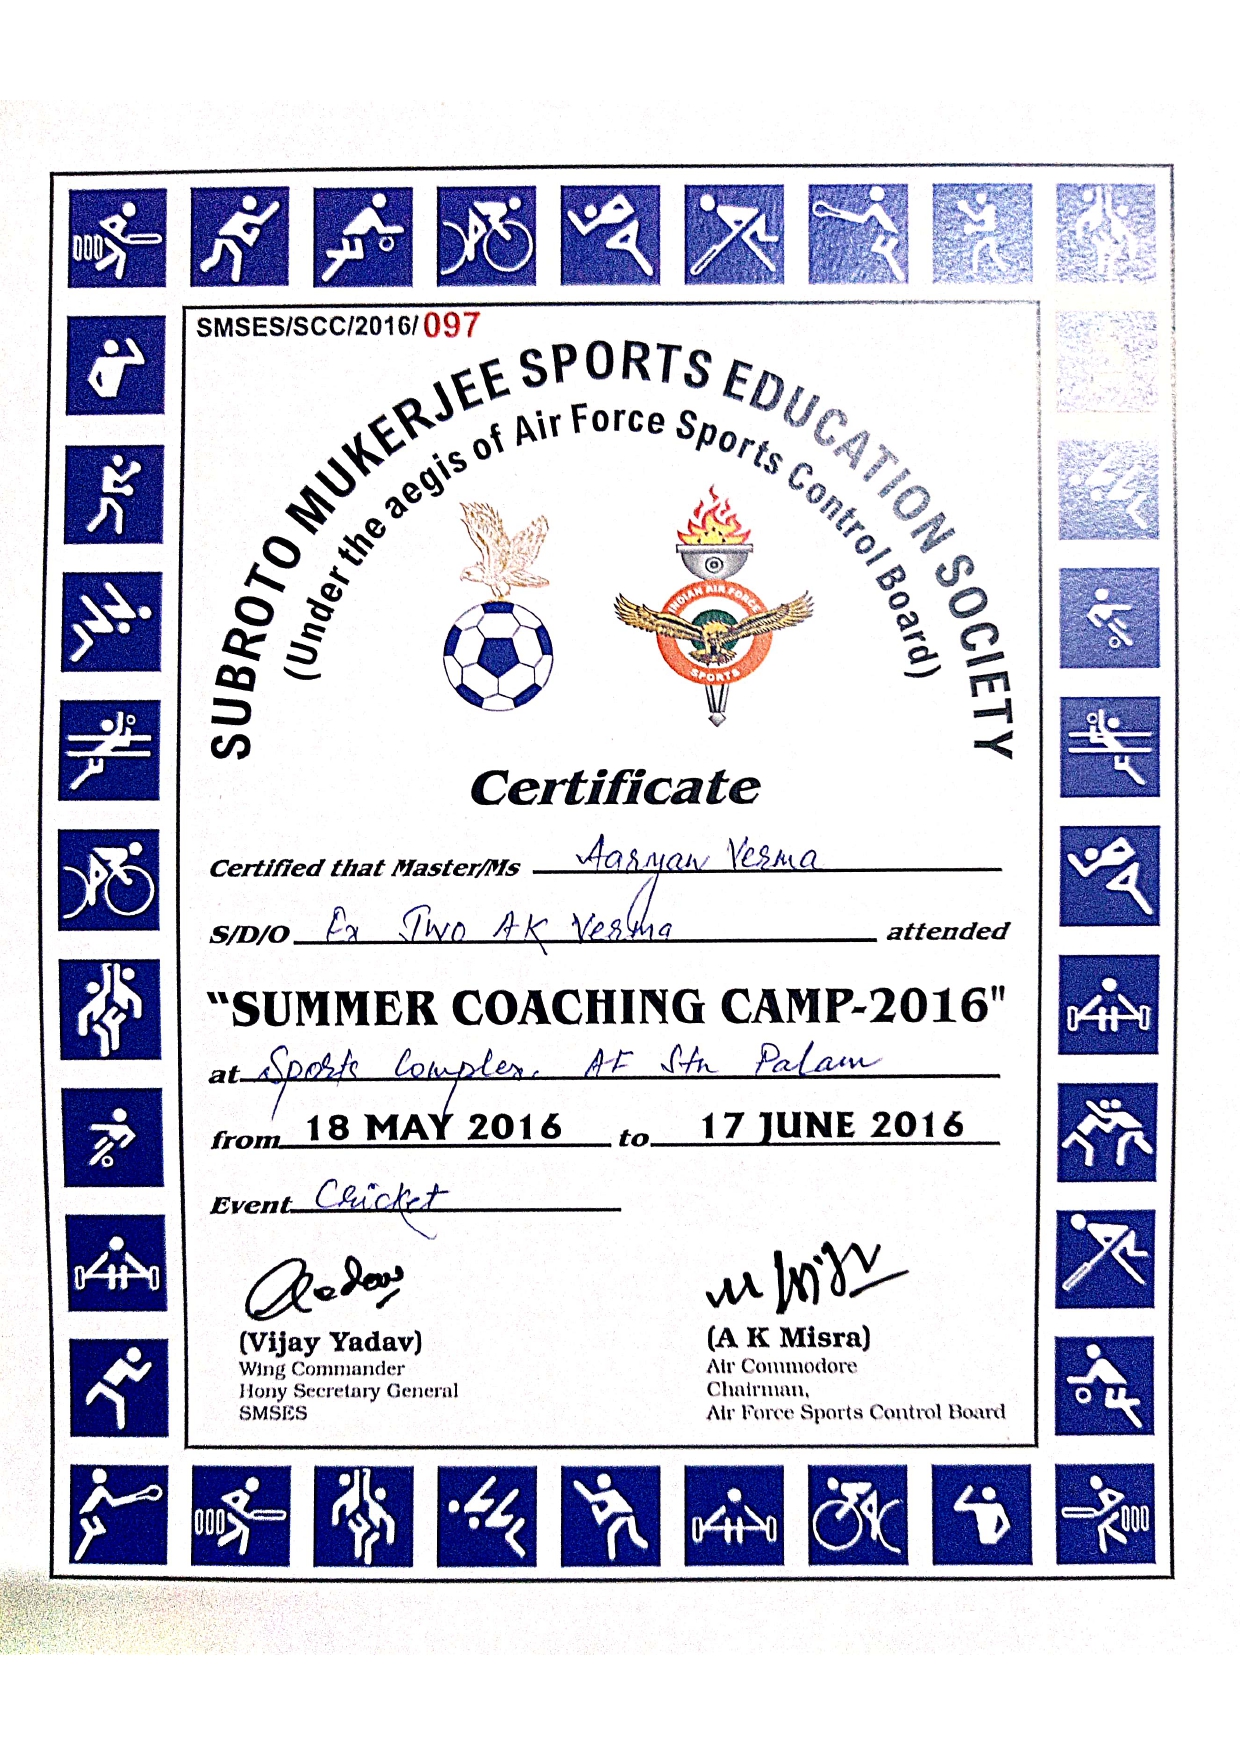 SMSES/SCC/2016/097
SUBROTO MUKERJEE SPORTS EDUCATION SOCIETY
(Under the aegis of Air Force Sports Control Board)
INDIAN AIR FORCE
SPORTS
Certificate
Certified that Master/Ms Aaryan Verma
S/D/O Ex JWO AK Verma attended
"SUMMER COACHING CAMP-2016"
at Sports Complex, AF Stn Palam
from 18 MAY 2016 to 17 JUNE 2016
Event Cricket
(Vijay Yadav)
Wing Commander
Hony Secretary General
SMSES
(A K Misra)
Air Commodore
Chairman,
Air Force Sports Control Board